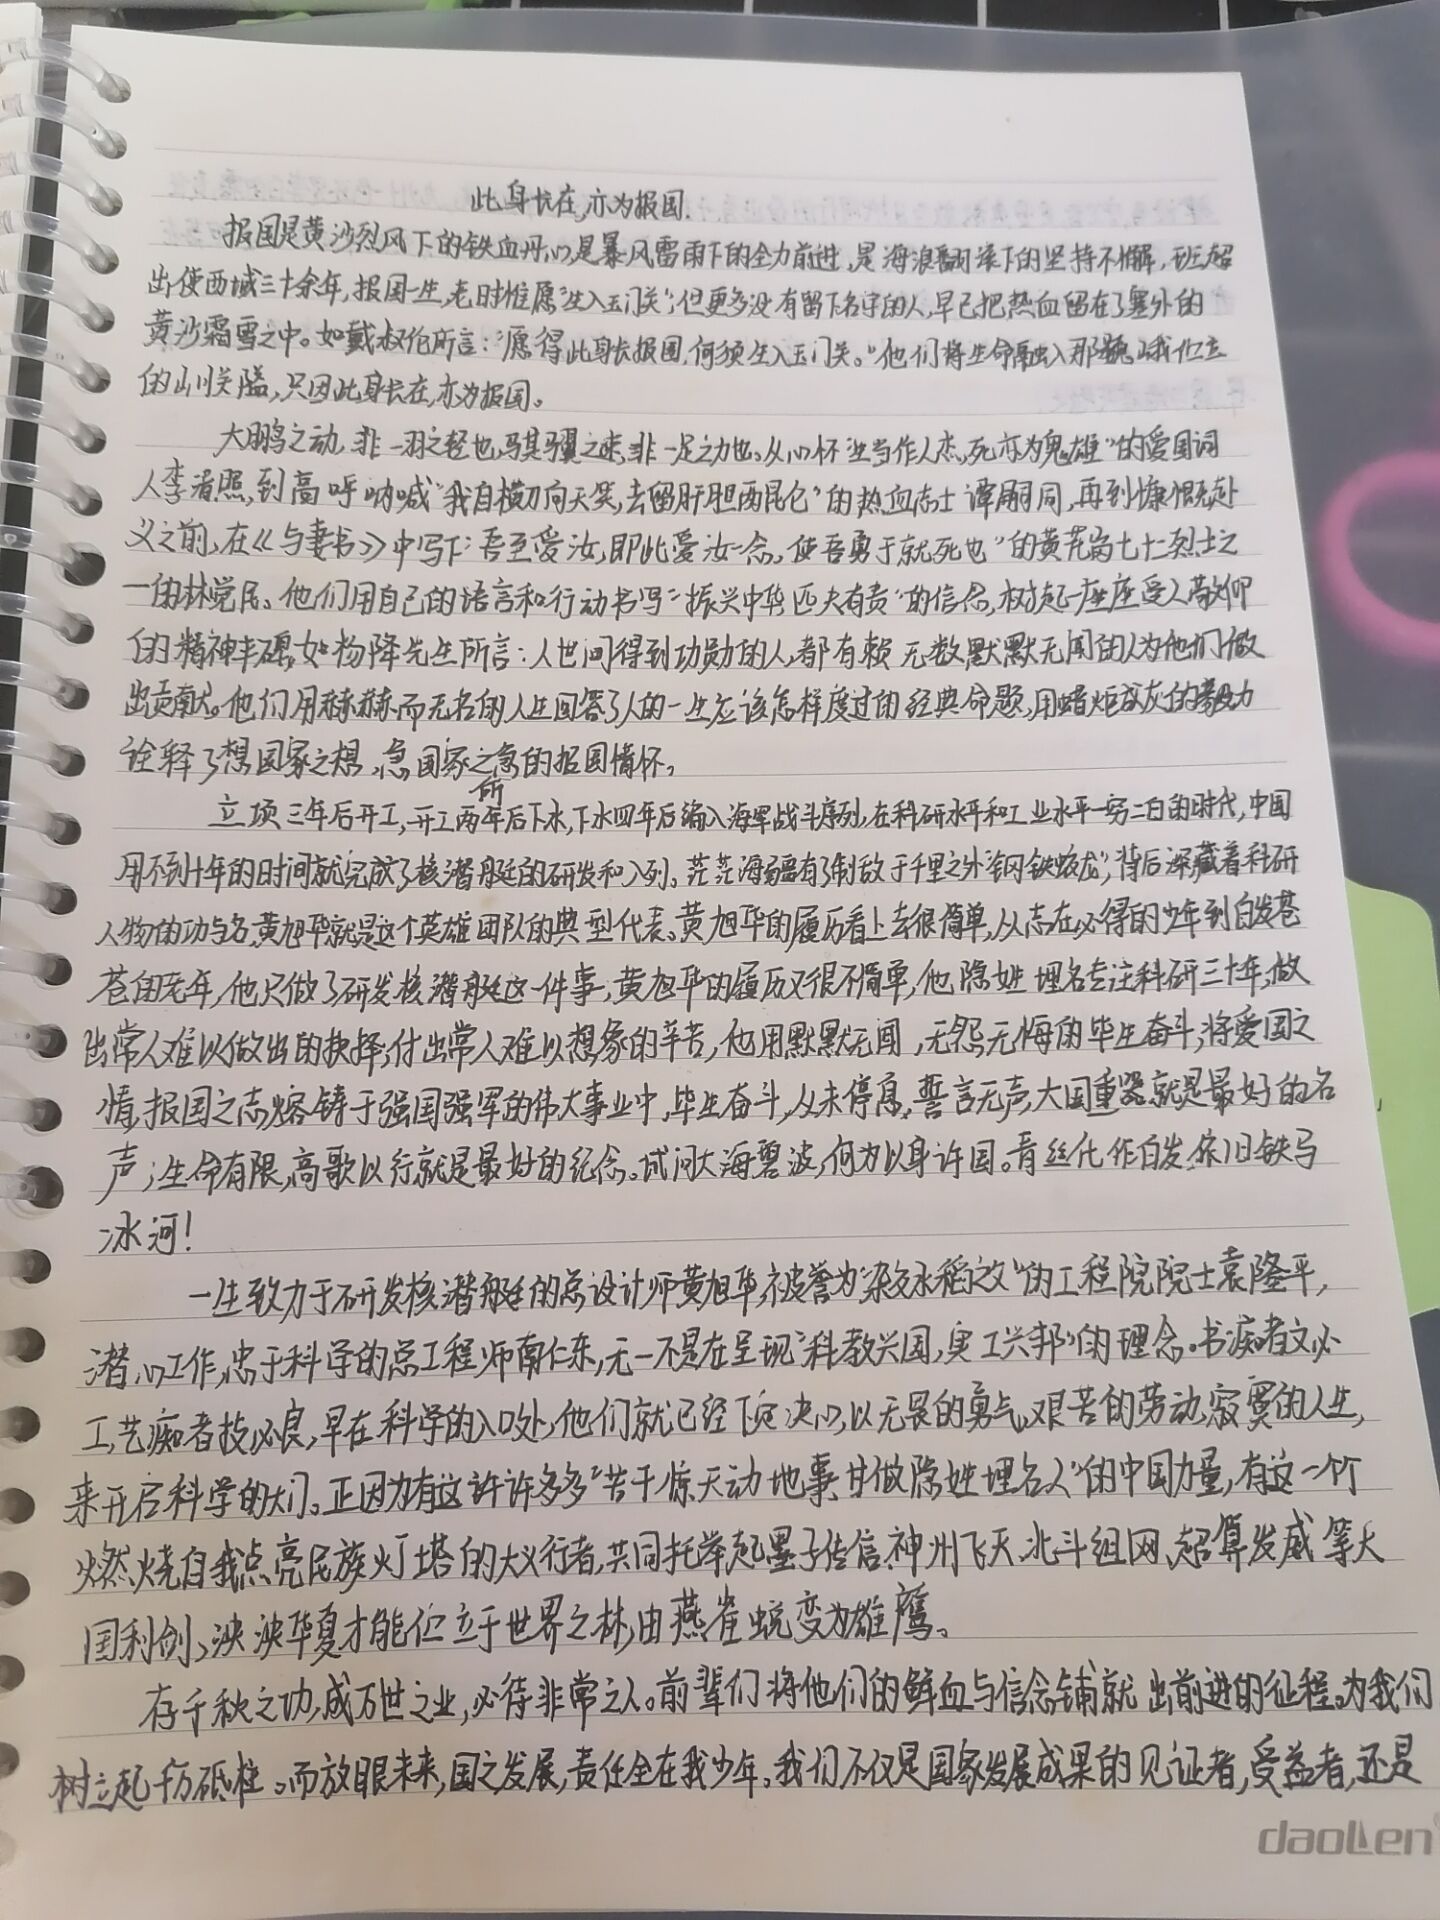 此身长在,亦为报国.
报国是黄沙烈风下的铁血丹心,是暴风雷雨下的全力前进,是海浪翻滚下的坚持不懈,班超
出使西域三十余年,报国一生,老时惟愿"生入玉门关";但更多没有留下名字的人,早已把热血留在了塞外的
黄沙霜雪之中。如戴叔伦所言:"愿得此身长报国,何须生入玉门关。"他们将生命融入那巍峨伫立
的山川关隘,只因此身长在,亦为报国。
大鹏之动,非一羽之轻也,骐骥之速,非一足之力也。从心怀"生当作人杰,死亦为鬼雄"的爱国词
人李清照,到高呼呐喊"我自横刀向天笑,去留肝胆两昆仑"的热血志士谭嗣同,再到慷慨赴
义之前,在《与妻书》中写下:"吾至爱汝,即此爱汝一念,使吾勇于就死也"的黄花岗七十二烈士之
一的林觉民。他们用自己的语言和行动书写"振兴中华,匹夫有责"的信念,树起一座座受人敬仰
的精神丰碑,如杨降先生所言:人世间得到功勋的人,都有赖无数默默无闻的人为他们做
出贡献。他们用赫赫而无名的人生回答了人的一生应该怎样度过的经典命题,用蜡炬成灰的毅力
诠释了想国家之所想、急国家之所急的报国情怀,
立项三年后开工,开工两年后下水,下水四年后编入海军战斗序列,在科研水平和工业水平一穷二白的时代,中国
用不到十年的时间就完成了核潜艇的研发和入列。茫茫海疆有了制敌于千里之外"钢铁蛟龙",背后深藏着科研
人物的功与名,黄旭华就是这个英雄团队的典型代表。黄旭华的履历看上去很简单,从志在必得的少年到白发苍
苍的老年,他只做了研发核潜艇这一件事;黄旭华的履历又很不简单,他隐姓埋名专注科研三十年,做
出常人难以做出的抉择,付出常人难以想象的辛苦,他用默默无闻,无怨无悔的毕生奋斗,将爱国之
情,报国之志熔铸于强国强军的伟大事业中,毕生奋斗,从未停息,誓言无声,大国重器就是最好的名
声;生命有限,高歌以行就是最好的纪念。试问大海碧波,何为以身许国。青丝化作白发,依旧铁马
冰河!
一生致力于研发核潜艇的总设计师黄旭华,被誉为"杂交水稻之父"的工程院院士袁隆平,
潜心工作,忠于科学的总工程师南仁东,无一不是在呈现"科教兴国,实工兴邦"的理念。书痴者文必
工,艺痴者技必良,早在科学的入口处,他们就已经下定决心,以无畏的勇气,艰苦的劳动,寂寞的人生,
来开启科学的大门。正因为有这许许多多"苦干惊天动地事,甘做隐姓埋名人"的中国力量,有这一个个
燃烧自我点亮民族灯塔的大义行者,共同托举起墨子传信,神州飞天,北斗组网、超算发威等大
国利剑,泱泱华夏才能伫立于世界之林,由燕雀蜕变为雄鹰。
存千秋之功,成万世之业,必待非常之人。前辈们将他们的鲜血与信念铺就出前进的征程,为我们
树立起千仞砥柱。而放眼未来,国之发展,责任全在我少年,我们不仅是国家发展成果的见证者,受益者,还是
daoLen